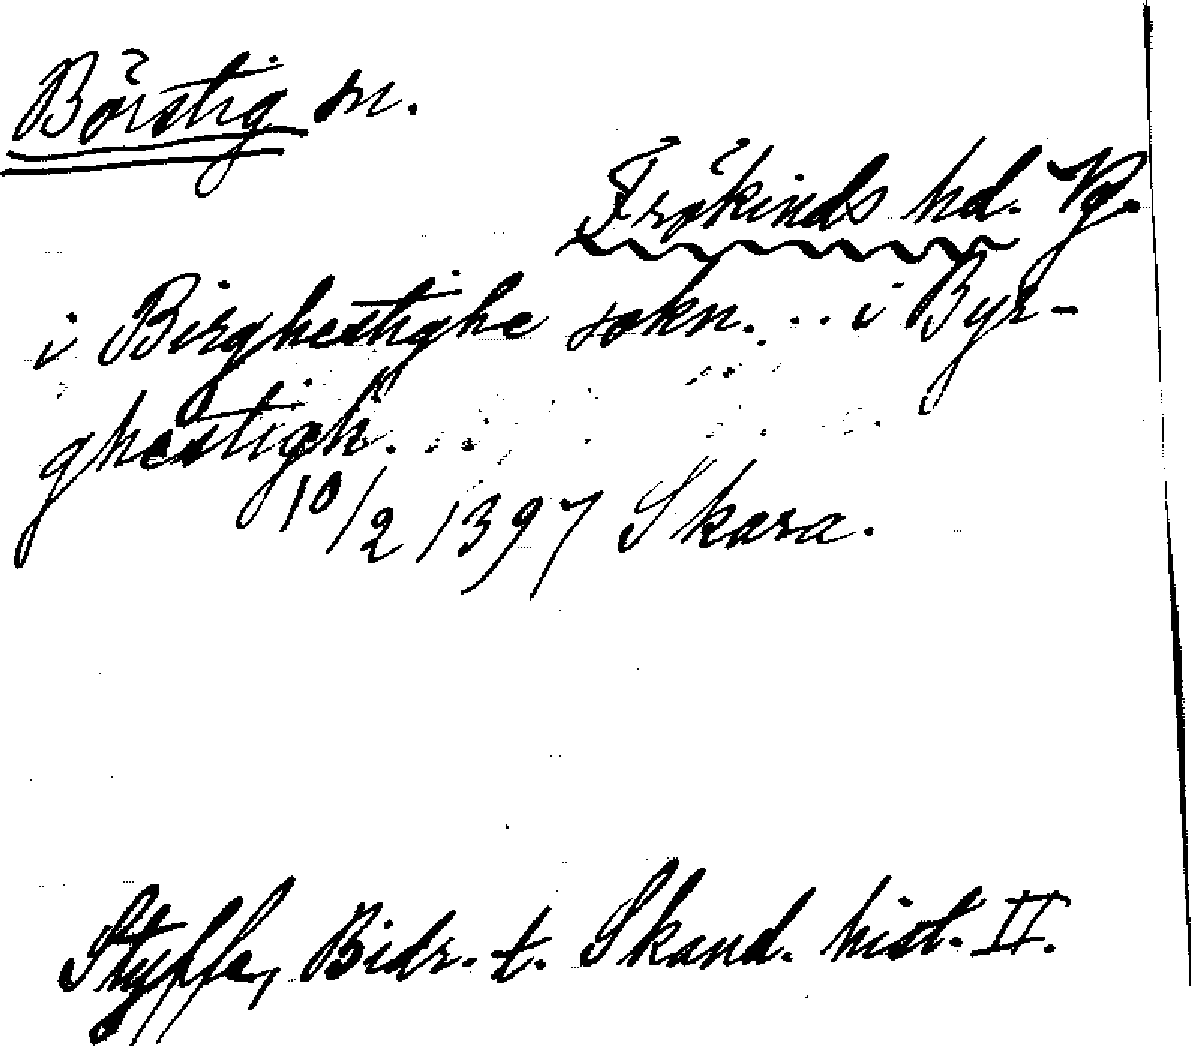 Börstig sn.
Frökinds hd. Vg.
i Birghestighe sokn. . . i Byr-
ghestigh.
10/2 1397 Skara.
Styffe, Bidr. t. Skand. hist. II.